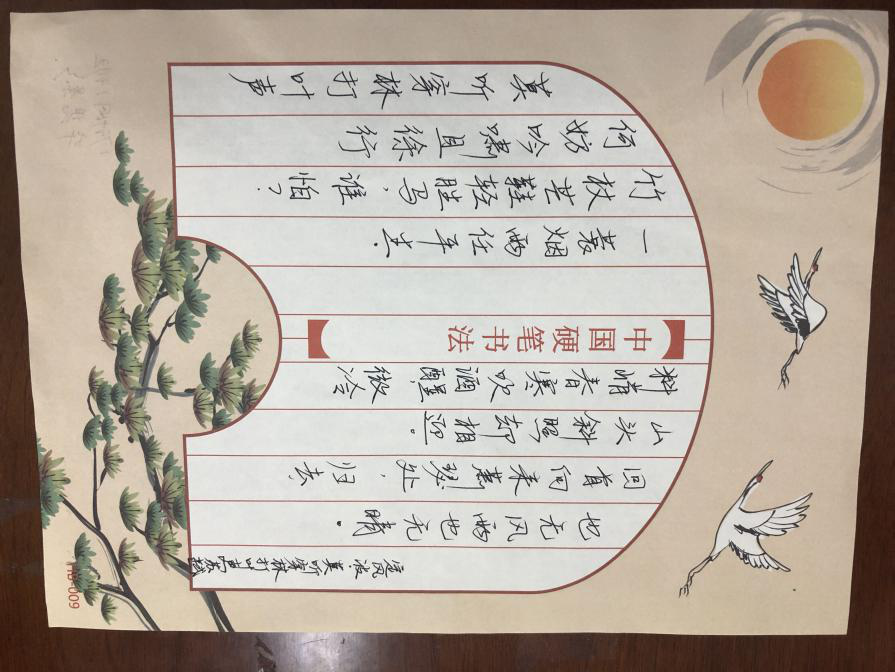 莫听穿林打叶声
何妨吟啸且徐行
竹杖芒鞋轻胜马，谁怕？
一蓑烟雨任平生.
中国硬笔书法
料峭春寒吹酒醒，微冷
山头斜照却相迎。
回首向来萧瑟处，归去，
也无风雨也无晴.
定风波 莫听穿林打叶声 苏轼
HB-009